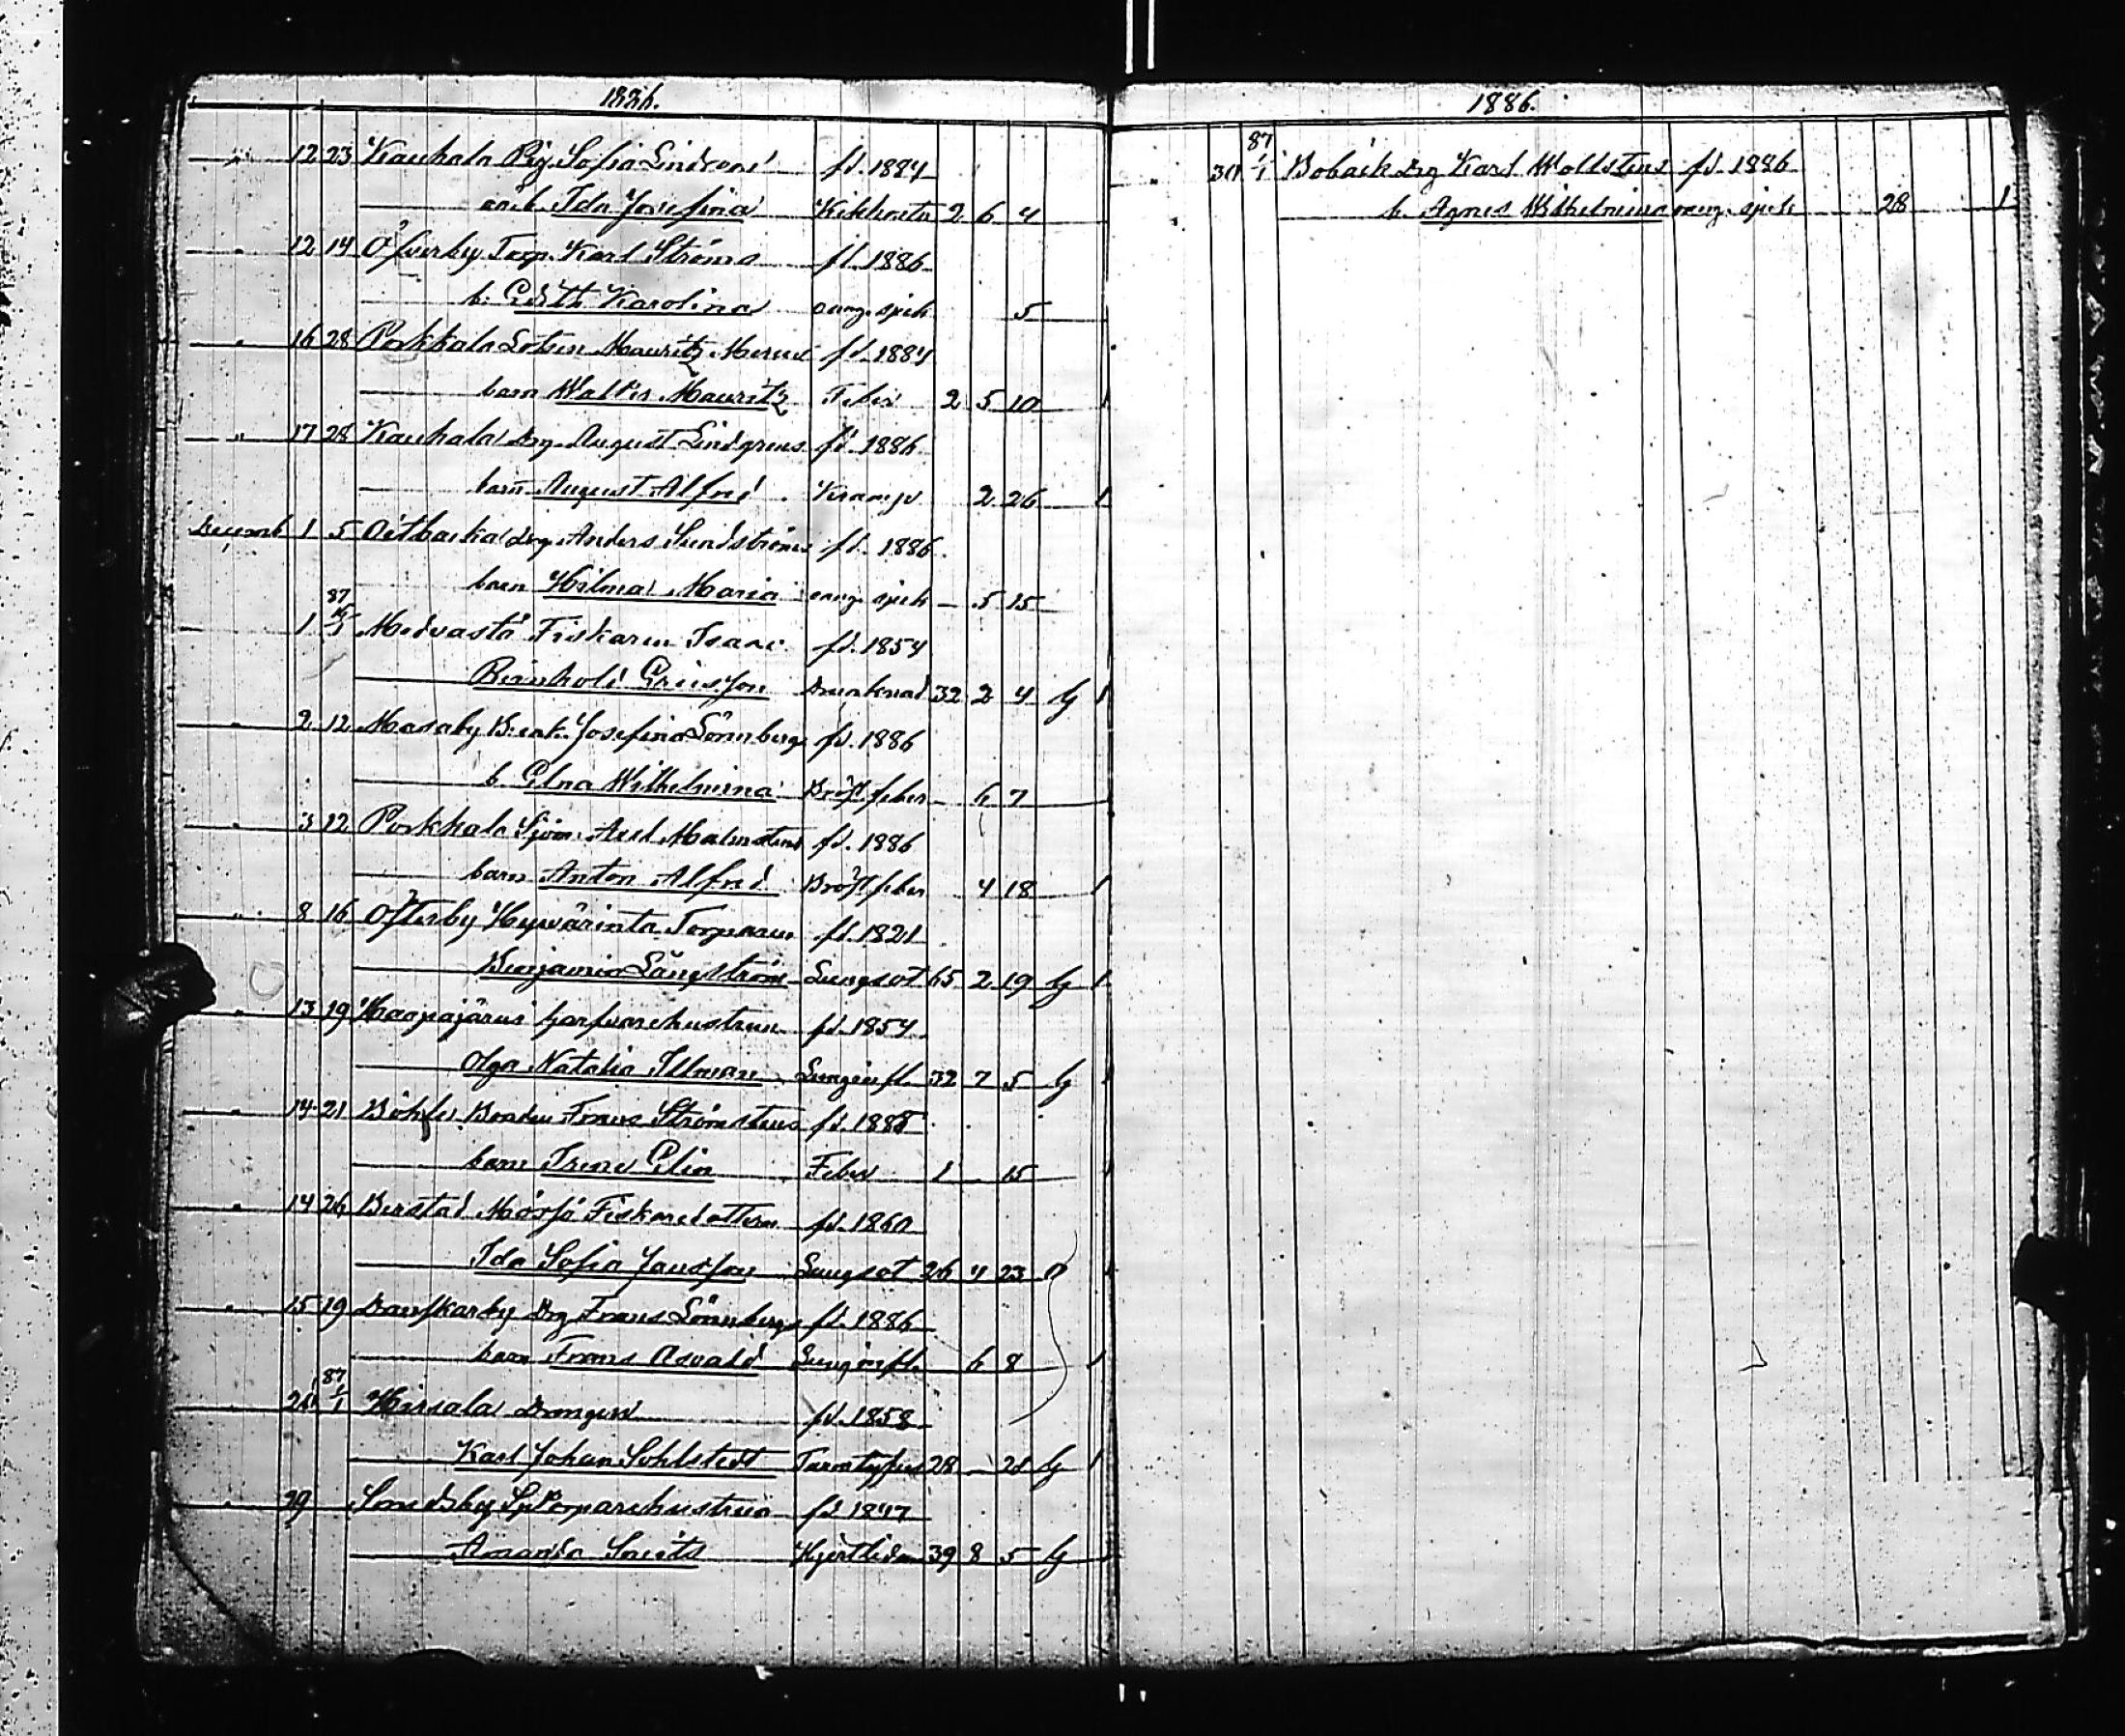 1886.
" 12 23 Kauhala Pig. Sofia Lindroos fd. 1884
oä. b. Ida Josefina Kikhosta 2 6 4
" 12 14 Öfverby Torp. Karl Ströms fd. 1886
b. Edith Karolina oang. sjuk 5
" 16 28 Porkkala Lotsen Mauritz fd. 1884
barn Mauritz Feber 2 5 10 1
" 17 28 Kauhala Drg. August Lindgrens fd. 1886
barn August Alfred Kramp 2 26 1
Decemb 1 5 Oitbacka Drg. Anders Sundströms fd. 1886
barn Hilma Maria oang. sjuk - 5 15
1 87 16/1 Medvastö Fiskaren Isac fd. 1854
Reinhold Ericsson Drunknad 32 2 4 g 1
" 2 12 Masaby Josefina Lönnbergs fd. 1886
b. Elna Wilhelmina Bröstfeber - 6 7
" 3 12 Porkkala Sjöm. Axel Malmstens fd. 1886
barn Anton Alfred Bröstfeber 4 18 1
" 8 16 Öfterby Hyvärinta Torparen fd. 1821
Benjamin Långström Lungsot 65 2 19 g 1
" 13 19 Haapajärvi Garfvarehustrun fd. 1854
Olga Natalia Illman Lunginfl. 32 7 5 g 1
" 14 21 Böhle Bonden Frans Strömstens fd. 1885
barn Irene Elin Feber 1 - 15 1
" 14 26 Berstad Mörsö Fiskaredottern fd. 1860
Ida Sofia Jansson Lungsot 26 4 23 0 1
" 15 19 Danskarby Drg Frans Lönnbergs fd. 1886
barn Frans Osvald Lunginfl. 6 8 1
26 87 1/1 Hirsala Drengen fd. 1858
Karl Johan Sohlstedt Tarmtyfus 28 - 28 g 1
" 29 Smedsby Sytorparehustrun fd. 1847
Amanda Smeds Hjertlidan 39 8 5 g 1
1886.
" 30 87 1/1 Bobäck Drg Karl Wollstens fd. 1886
b. Agnes Wilhelmina oang. sjuk 28 1